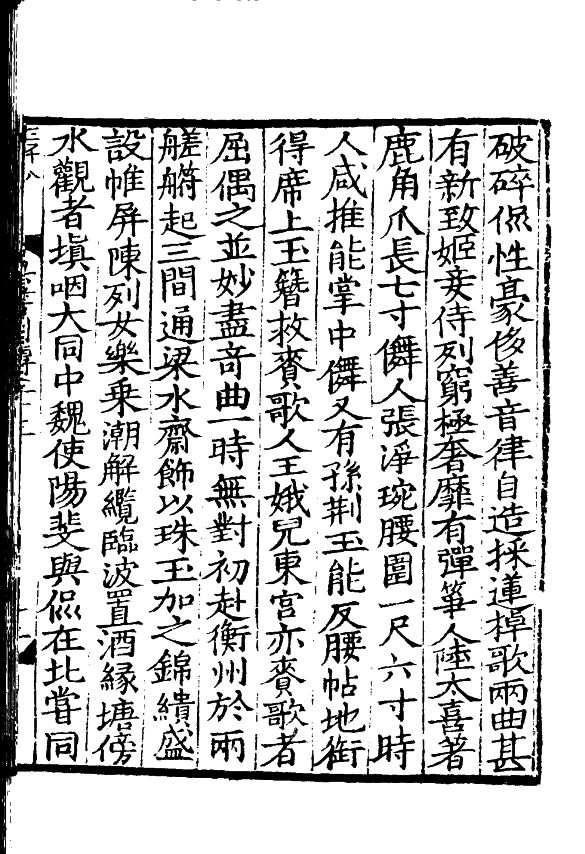 破碎侃性豪侈善音律自造採蓮棹歌兩曲甚
有新致姬妾侍列窮極奢靡有彈箏人陸太喜著
鹿角爪長七寸儛人張淨琬腰圍一尺六寸時
人咸推能掌中儛又有孫荆玉能反腰帖地銜
得席上玉簪敕賚歌人王娥兒東宮亦賚歌者
屈偶之並妙盡奇曲一時無對初赴衡州於兩
艖䑀起三間通梁水齋飾以珠玉加之錦繢盛
設帷屏陳列女樂乗潮解纜臨波置酒緣塘傍
水觀者塡咽大同中魏使陽斐與侃在北嘗同